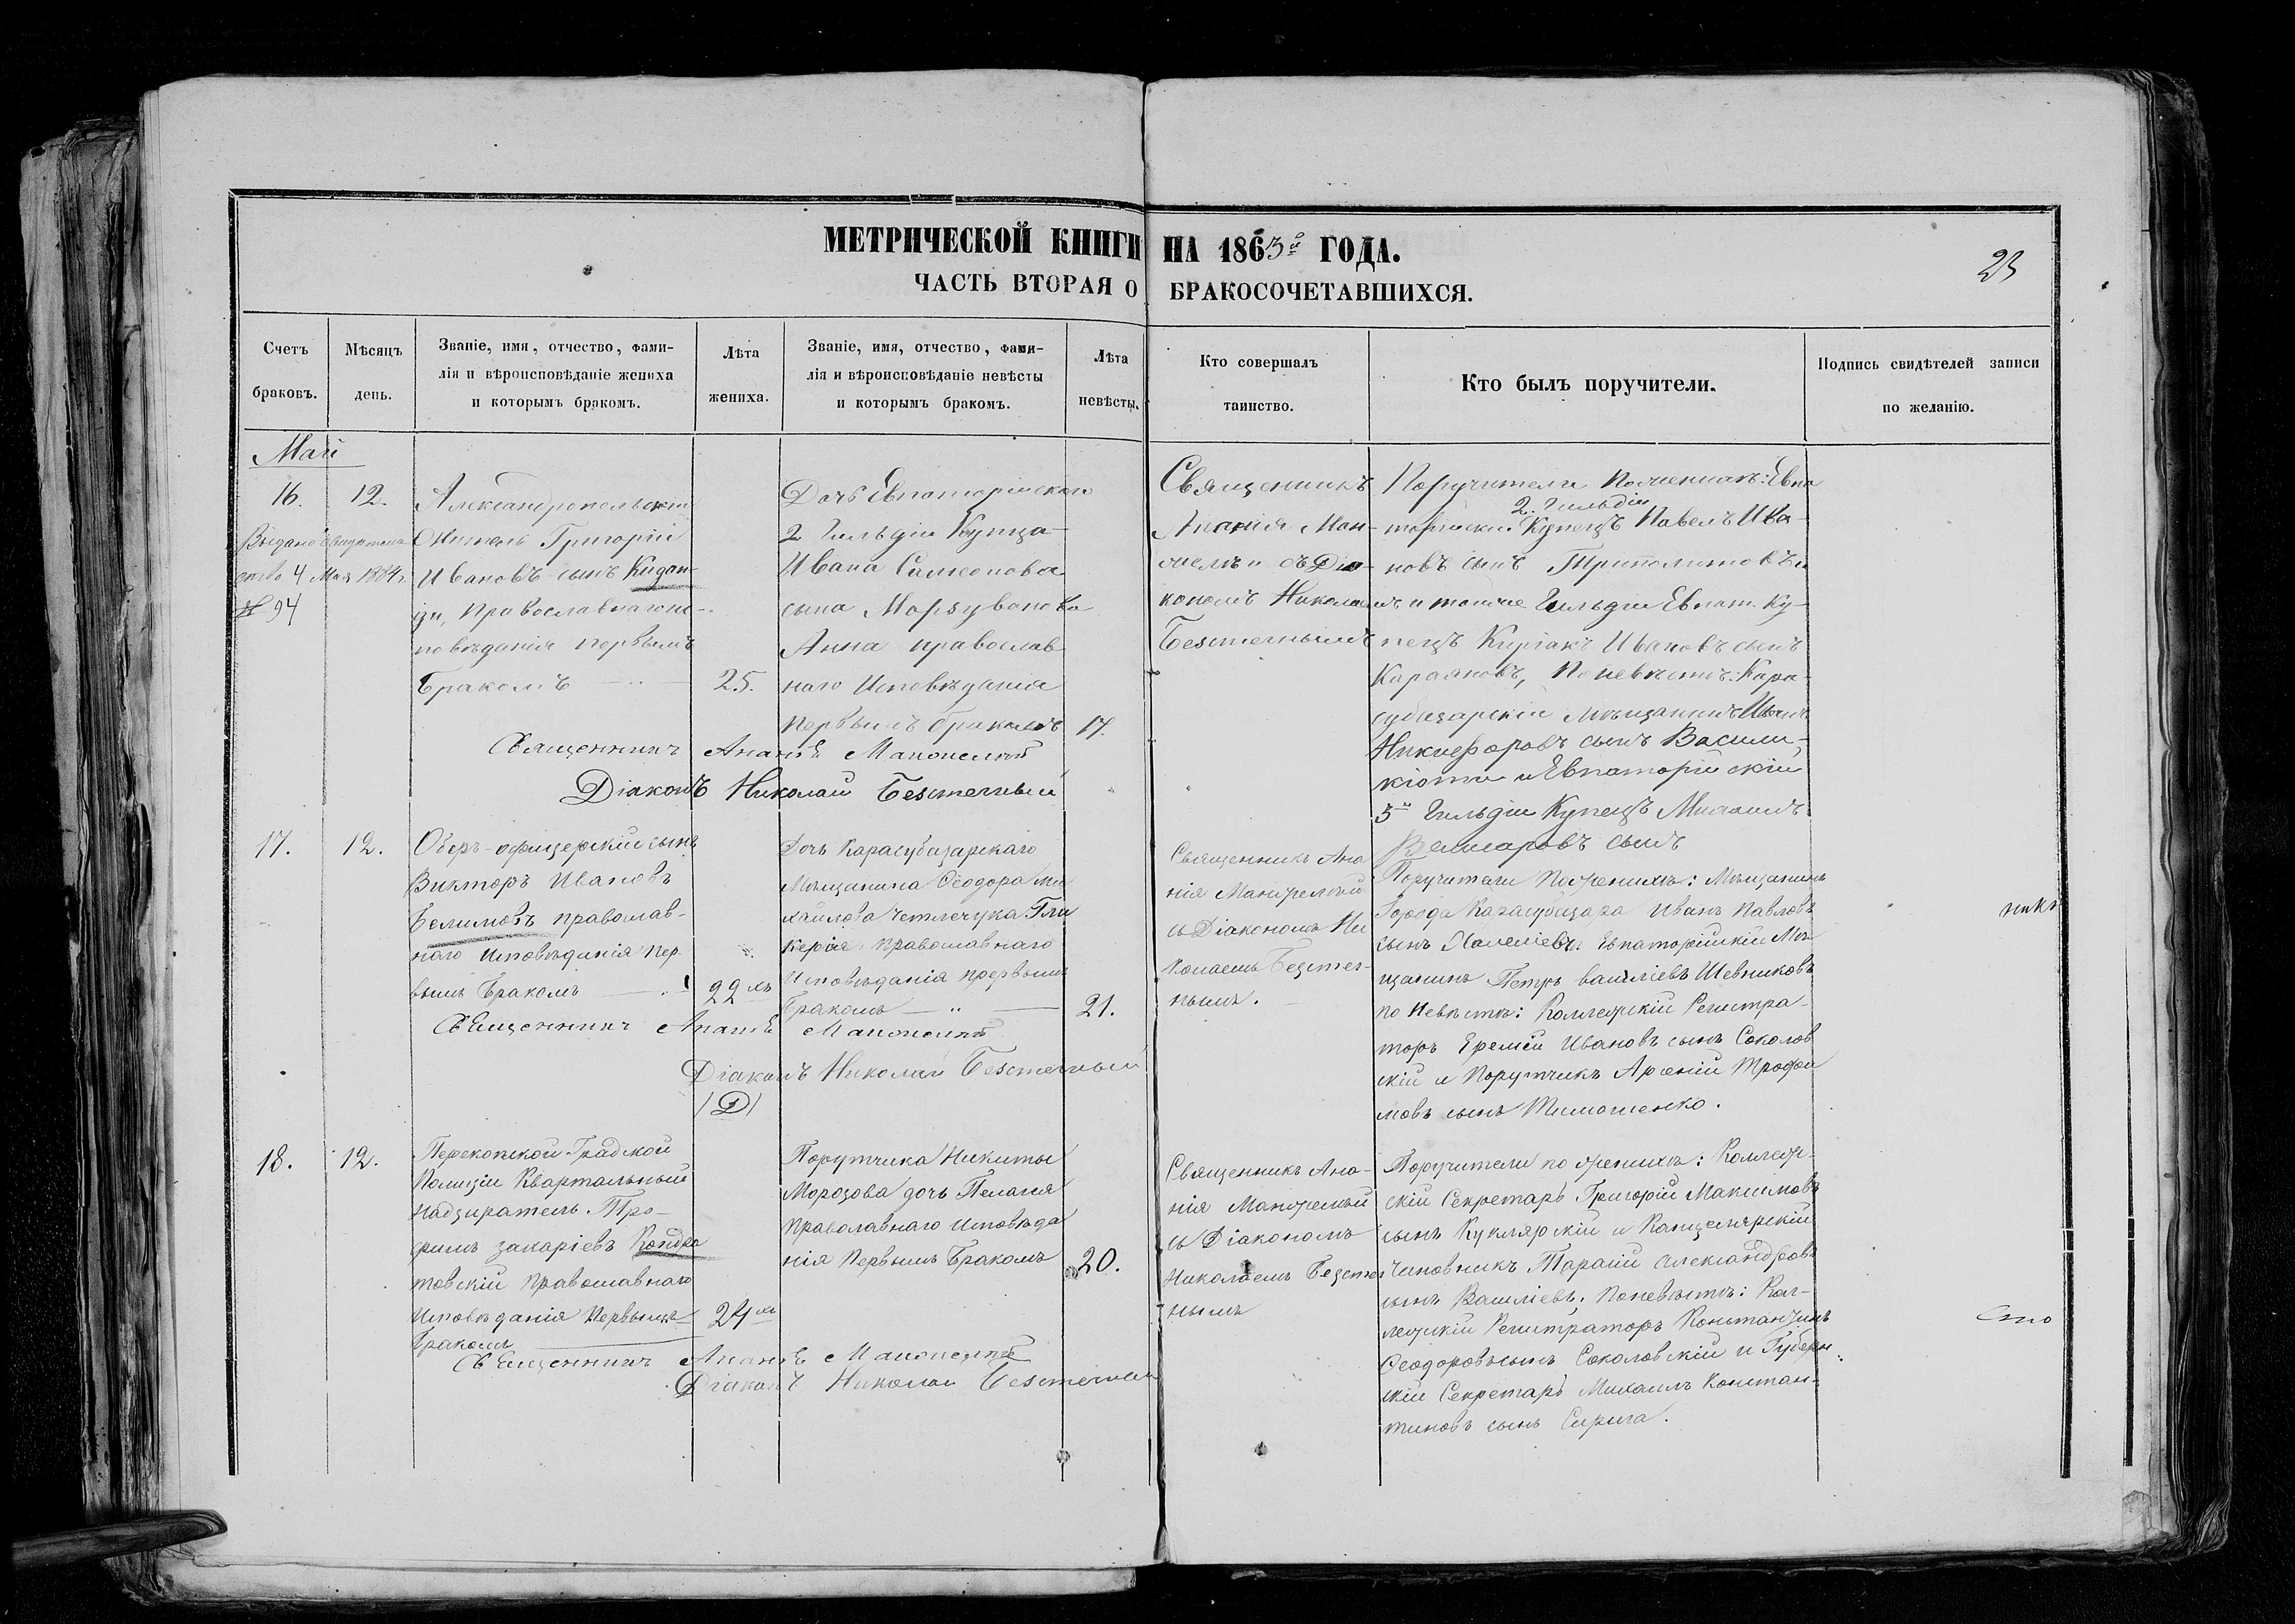 МЕТРИЧЕСКОЙ КНИГИ НА 1863й ГОДА.
ЧАСТЬ ВТОРАЯ О БРАКОСОЧЕТАВШИХСЯ.
23
Счетъ
браковъ.
Мѣсяцъ
день.
Званіе, имя, отчество, фами-
лія и вѣроисповѣданіе жениха
и которымъ бракомъ.
Лѣта
жениха.
Званіе, имя, отчество, фами-
лія и вѣроисповѣданіе невѣсты
и которымъ бракомъ.
Лѣта
невѣсты.
Кто совершалъ
таинство.
Кто былъ поручители.
Подпись свидѣтелей записи
по желанію.
Май
16.
Выдано свидетель
ство 4 Мая 1884 г.
№ 94
12.
Александропольскій
Житель Григорій
Ивановъ сынъ Кидон-
зи, Православнаго ис-
повѣданія первымъ
бракомъ
25.
Дочь Евпаторійскаго
2 Гильдіи Купца
Ивана Симеонова
сына Марзуванова
Анна православ
наго Исповѣданія
первымъ бракомъ
17.
Священникъ
Ананія Ман-
съ Діа-
кономъ Николаемъ
Безстечнымъ
Поручители По женихѣ: Евпа
2. Гильдіи
торійскій Купецъ Павелъ Ива-
новъ сынъ
и той же Гильдіи Евпат. Ку-
пецъ Киріакъ Ивановъ сынъ
Караяновъ, По невѣстѣ: Кара-
субазарскій мѣщанинъ Иванъ
Никифоровъ сынъ Васили-
кіоти и Евпаторійскій
3й Гильдіи Купецъ Михаилъ
сынъ
Священникъ Ананія
Діаконъ Николай Безстечный
17.
12.
Оберъ-офицерскій сынъ
Викторъ Ивановъ
Белимовъ православ-
наго Исповѣданія пер-
вымъ Бракомъ
22хъ
Дочь Карасубазарскаго
Мѣщанина Ѳеодора Ми
хайлова Четлечука Гли
керія православнаго
Исповѣданія первымъ
Бракомъ
21.
Священникъ Ана
нія Манжелѣй
съ Діакономъ Ни
колаемъ Безстеч-
нымъ.
Поручители По женихѣ: Мѣщанинъ
Города Карасубазара Иванъ Павловъ
сынъ Евпаторійскій Мѣ-
щанинъ Петръ Василіевъ Шевниковъ
по Невѣстѣ: Коллежскій Регистра-
торъ Еремѣй Ивановъ сынъ Соколов
скій и Порутчикъ Арсеній Трофи
мовъ сынъ Тимошенко.
никъ
Священникъ Ананія
Діаконъ Николай Безстечный
/Д/
18.
12.
Перекопской Градской
Полиціи Квартальный
Надзиратель Тро-
фимъ Захаріевъ Кондра
товскій Православнаго
Исповѣданія Первымъ
Бракомъ
24хъ
Порутчика Никиты
Морозова дочь Пелагея
Православнаго Исповѣда
нія Первымъ Бракомъ
20.
Священникъ Ана-
нія Манжелѣй
съ Діакономъ
Николаемъ Безстеч
нымъ
Поручители по женихѣ: Коллеж-
скій Секретарь Григорій Максимовъ
сынъ Куклярскій и Канцелярскій
Чиновникъ Тарасій Александровъ
сынъ Василіевъ, По невѣстѣ: Кол-
лежскій Регистраторъ Константинъ
Ѳеодоровъ сынъ Соколовскій и Губерн-
скій Секретарь Михаилъ Констан-
тиновъ сынъ Сирига.
сто
Священникъ Ананія
Діаконъ Николай Безстечный